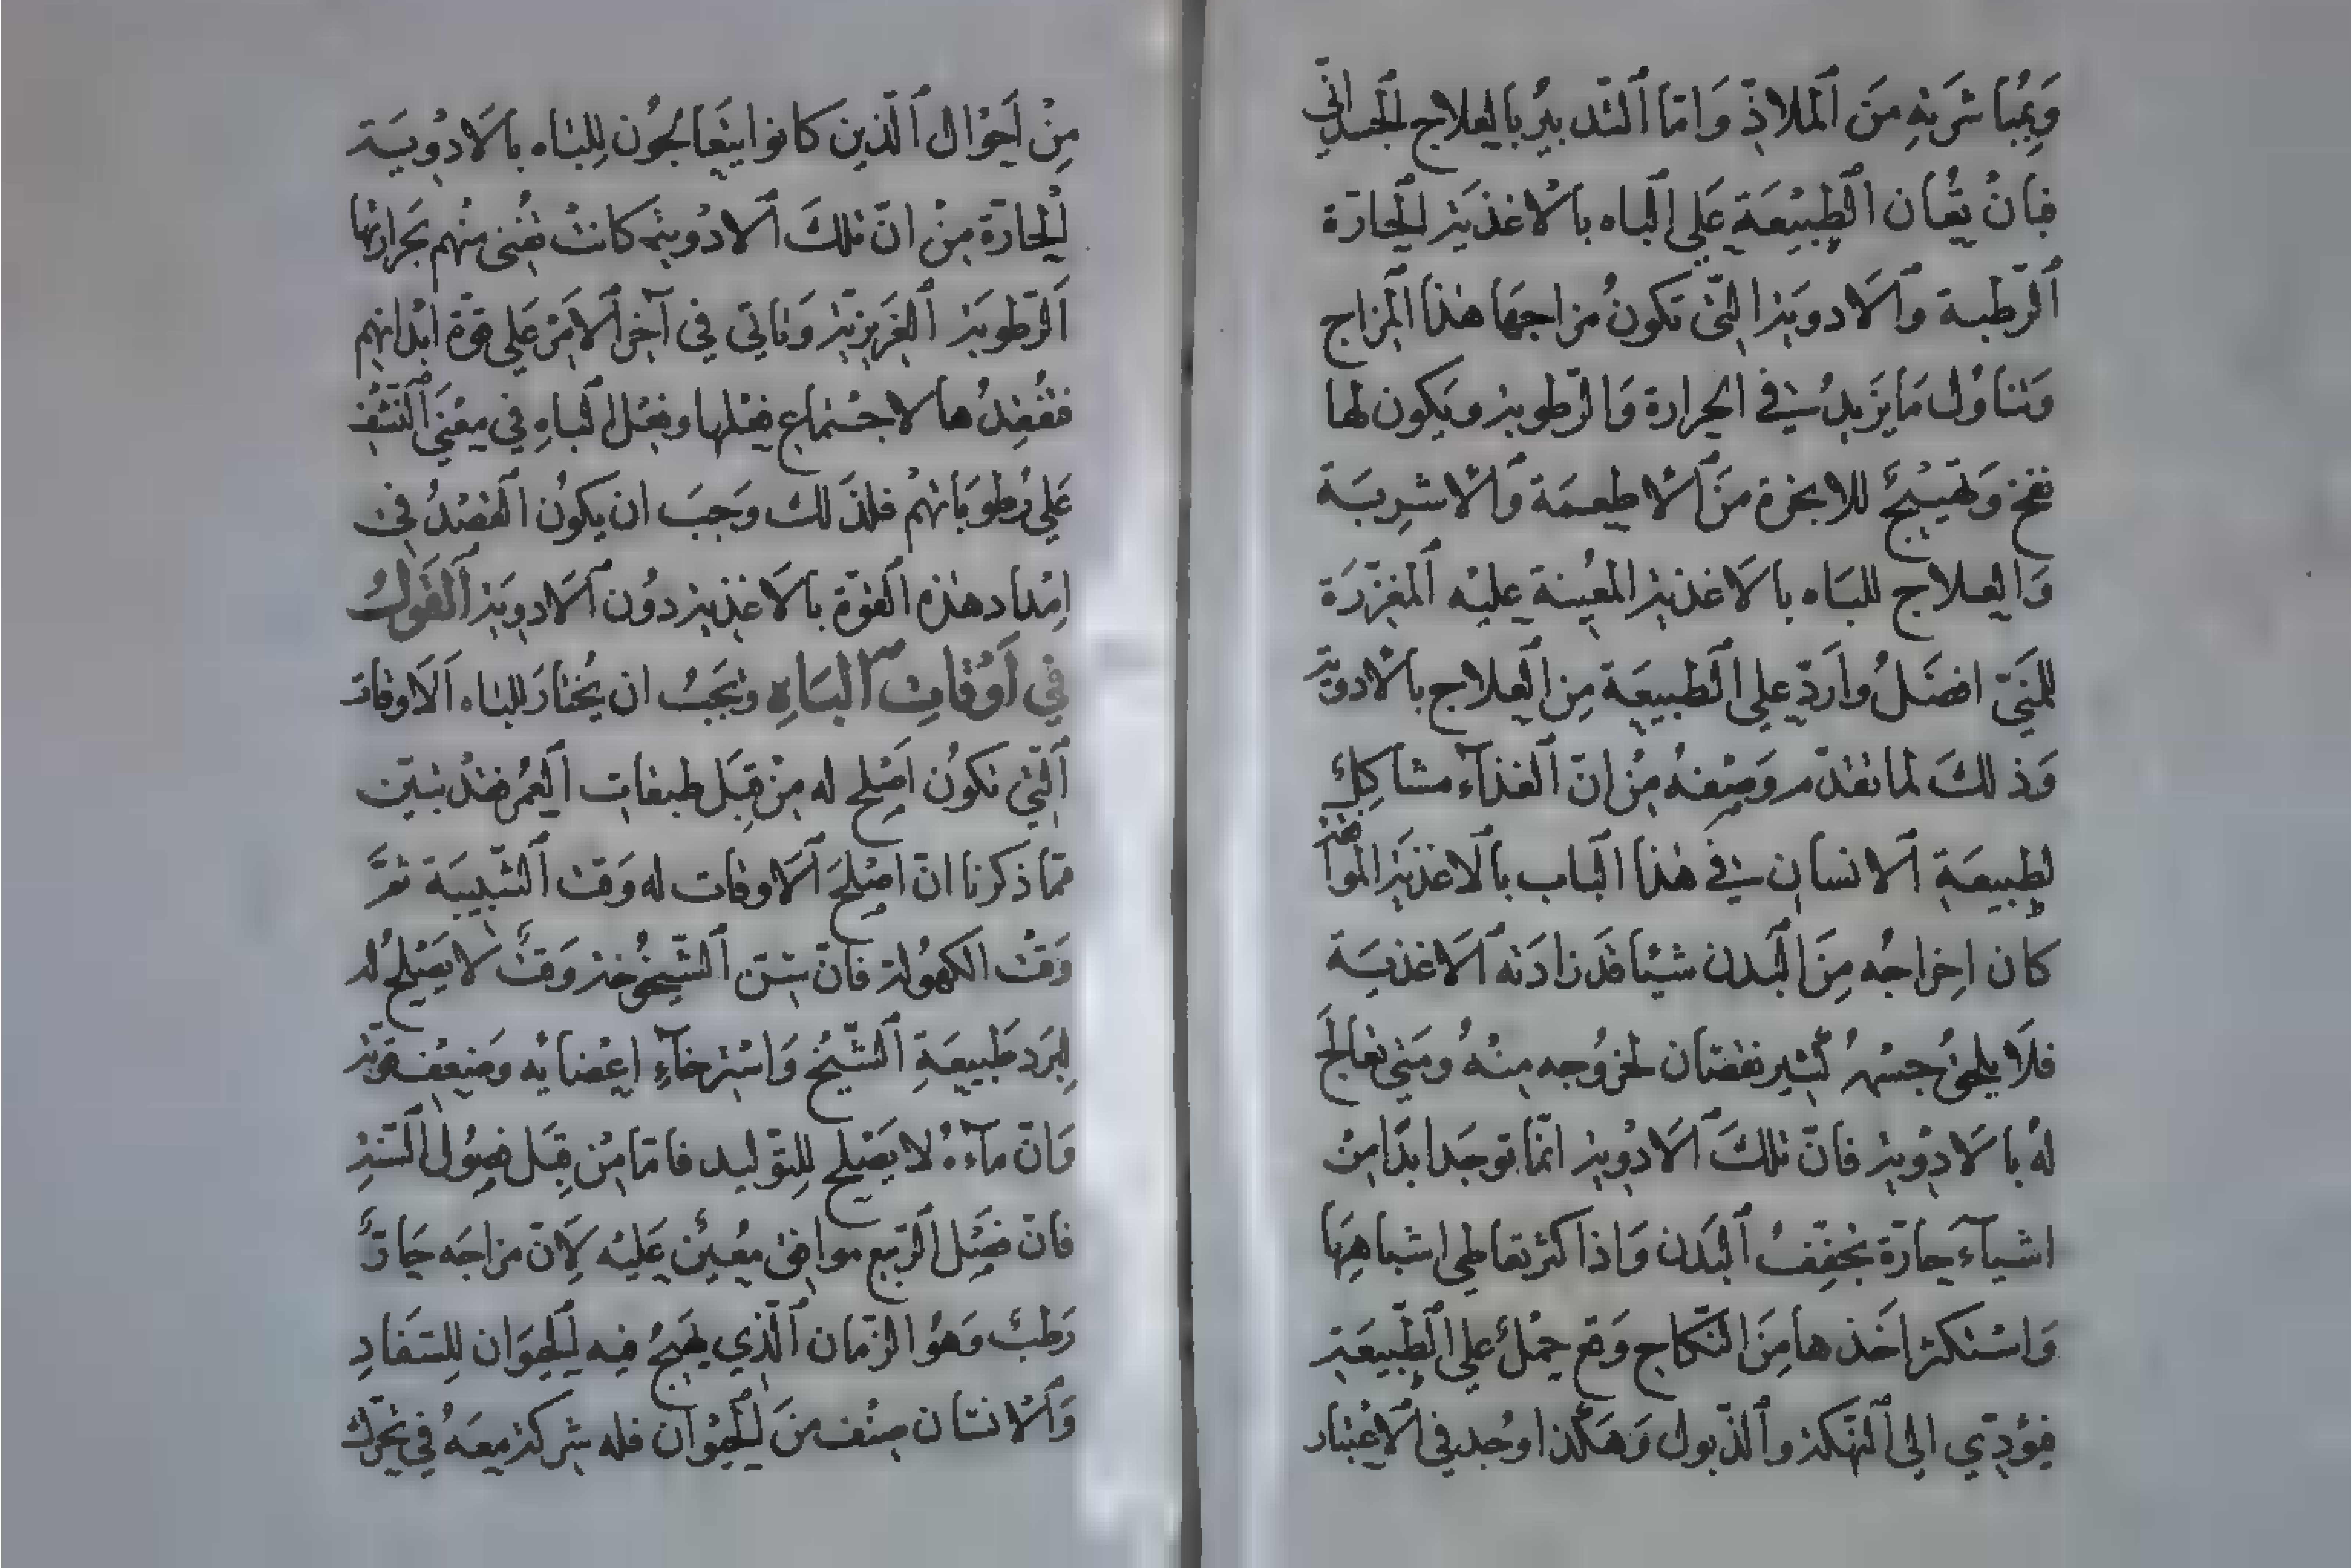 وَيُبَاشَرُ بهِ مِنَ ٱلملاذّ وَامّا ٱلتّدبيرُ بالعلاج الجسدانى
فبانْ تُعان ٱلطّبيْعَة عَلى ٱلباه بالاغذيَة ٱلحارّة
ٱلرّطبة وَٱلادويَة الّتى تكونُ مزاجهَا هٰذا ٱلمزاج
وَتناوُل مَا يَزيدُ فى الحرارة وَالرّطوبة ويَكون لها
نفخ وَتهييْجٌ للابخرة مِنَ ٱلاطعمَة وَٱلاشرِبَة
وَالعلاج للبَاه بالَاغذية المعُينة عليْه ٱلمغزّرَة
للمَنىّ افضَلُ واَردّ على ٱلطبيعَة مِن ٱلعلاج بالْادويَة
وَذلكَ لما تقدّم وَصْفهُ مِنْ انّ ٱلغذآء مشاكِلٌ
لطبيعَة ٱلانسان فى هٰذا ٱلباب بالَاغذيَة الموافقة
كان اِخراجُه مِنَ ٱلبَدن شيئا قدَ زادَته ٱلَاغذيَة
فلَا يلحقُ جسْمهُ كثير نقصَان لخرُوجه منْهُ ومَتى تعالجَ
لهُ بالَادْوية فانّ تلكَ ٱلادْوية انّما توجَد ابدًا مِنْ
اشيآء حارّة تجفّفُ ٱلبَدن وَاذا كثر تعاطى اشباهِهَا
وَاسْتكثر اَخذهَا مِنَ النّكاح وَقع حمْلٌ على ٱلطّبيعَة
فيؤدّي الى ٱلنّهكة وٱلذّبول وَهَكذا وُجد فى ٱلاِعْتبار
مِنْ اَحْوال ٱلّذين كانوا يتعَالجُون لِلبْاه بالَادْويَة
ٱلحارّة مِنْ انّ تلكَ ٱلادْوية كانتْ تفنى منْهم بحَرارتها
اَلرّطوبَة ٱلغَريزيّة وَتاتى فى آخر ٱلامْر عَلى قوّة ابْدانهم
فتُفْسِدُها لاجْتماع فعْلها وفعْل ٱلباهِ فى معْنى
عَلى رُطوبَاتهمْ فلذَلك وَجبَ ان يكوُن ٱلقصْدُ فى
اِمْداد هٰذه ٱلقوّة بالَاغذية دوُن ٱلَادويَة ٱلقَولُ
فى اَوْقاتِ ٱلبَاهِ ويَجبُ ان يُختارَ للباه ٱلَاوقات
ٱلّتي تكوُن اَصْلح له مِنْ قِبَل طبقات ٱلعُمر فقدْ تبيّن
ممّا ذكرنا انّ اصْلحَ ٱلَاوقات له وَقت ٱلشّبيبَة ثمَّ
وَقْت الكهوُلة فانّ سنّ ٱلشّيخُوخة وَقتٌ لا يَصْلحُ لهُ
لِبَرد طَبيعَةِ ٱلشّيْخ وَاسْترخآءِ اَعْضائه وضعْف قوّته
وَانّ مآءهُ لا يصْلح لِلتّوليد فامّا مِنْ قِبَل فصُول ٱلسّنة
فانّ فصْل ٱلرّبيع موافق معُينٌ عَليْه لِاَنّ مزاجَه حَارٌّ
رَطبٌ وَهوُ الزّمان ٱلّذي يهَيجُ فيه ٱلحيَوَان لِلسّفادِ
وَٱلانسَان صنْف منَ ٱلحيْوَان فله شركة معَهُ فى تحرّك